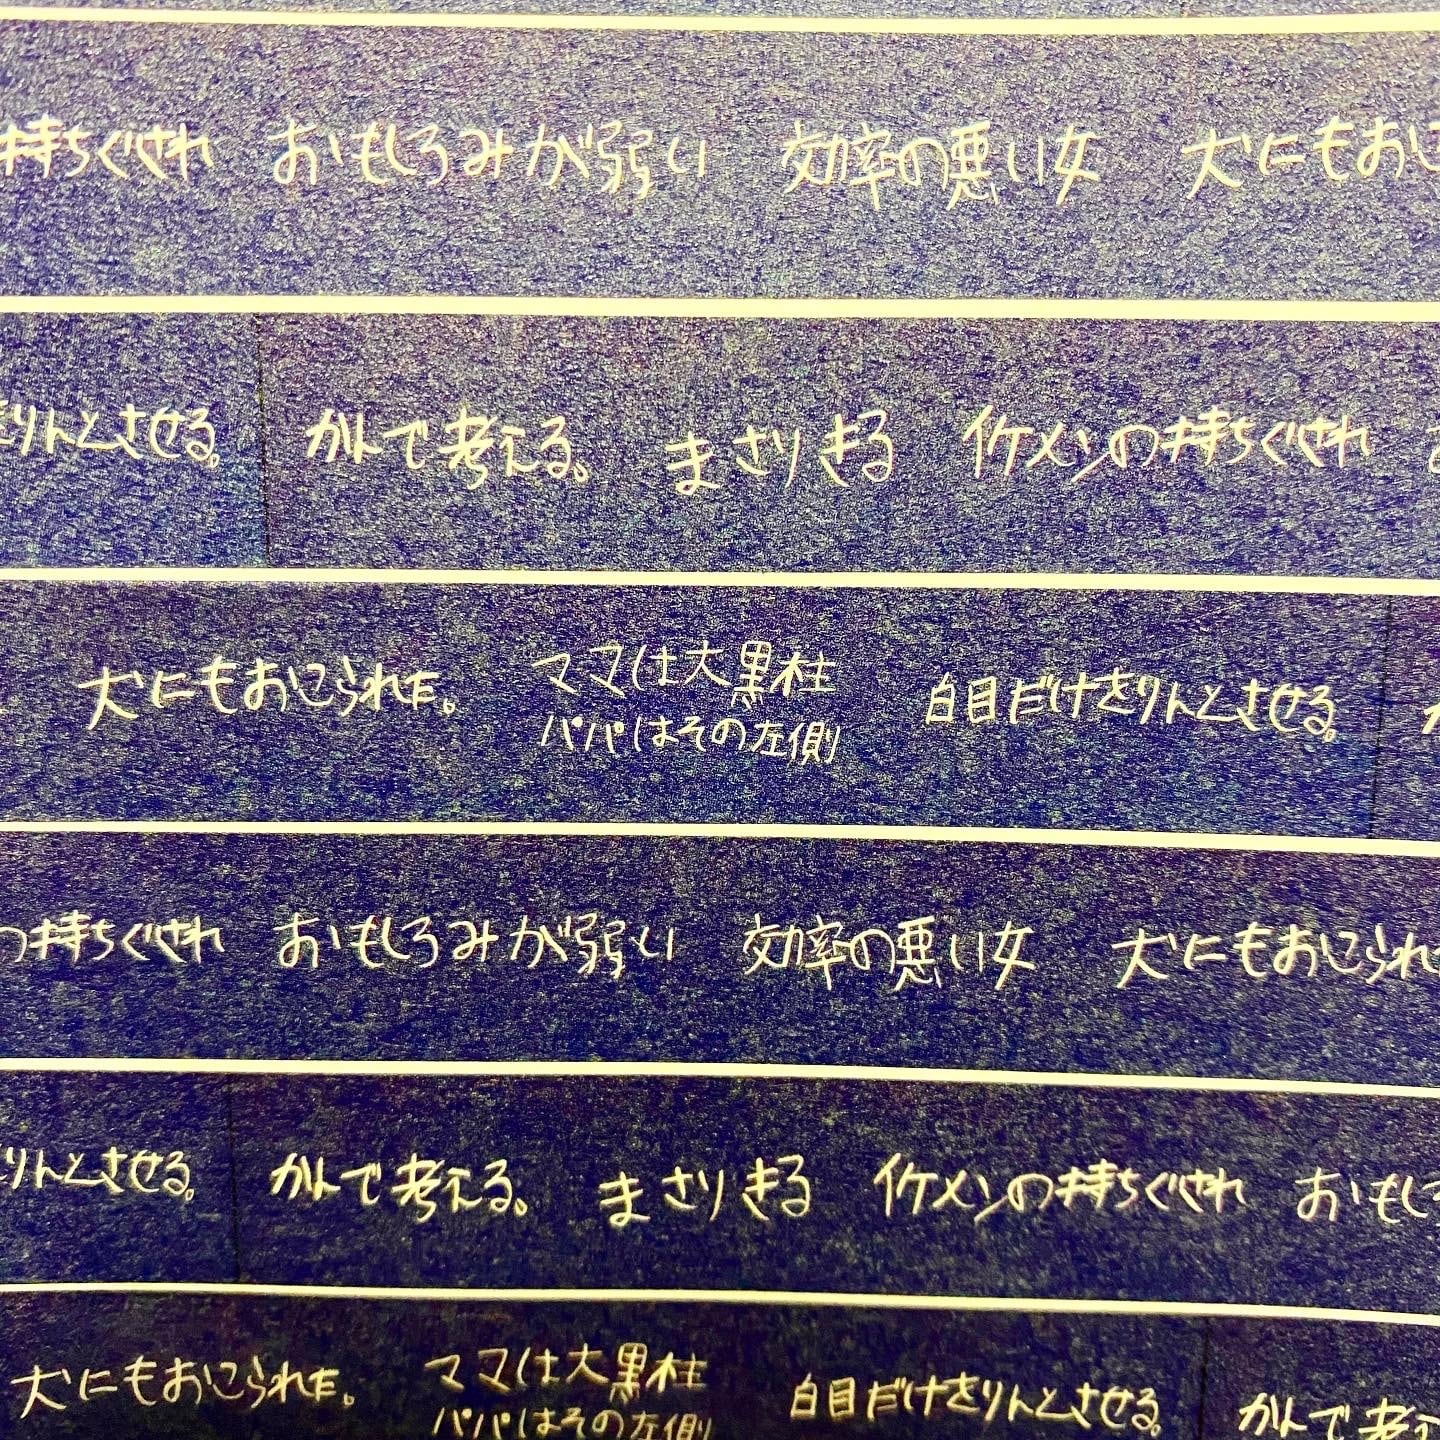 持ちぐされ おもしろみが弱い 効率の悪い女 犬にもおこ
きりんとさせる。 かんで考える。 まさりきる イケメンの持ちぐされ
犬にもおこられた。 ママは大黒柱 白目だけきりんとさせる。
パパはその左側
の持ちぐされ おもしろみが弱い 効率の悪い女 犬にもおこられ
りんとさせる。 かんで考える。 まさりきる イケメンの持ちぐされ おもし
犬にもおこられた。 ママは大黒柱 白目だけきりんとさせる。 かんで考え
パパはその左側